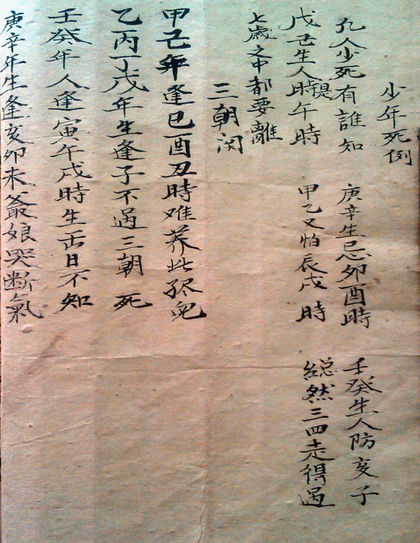 少年死例
孔人少死有誰知 庚辛生忌卯酉時 壬癸生人防亥子
戊己生人提時午時 甲乙又怕辰戌時 総然三四走得過
七歲之中都要離
三朝闵
甲己年逢巳酉丑時难养此孩兒
乙丙丁戊年生逢子不過三朝死
壬癸年人逢寅午戌時生日不知
庚辛年生逢亥卯未爺娘哭斷氣